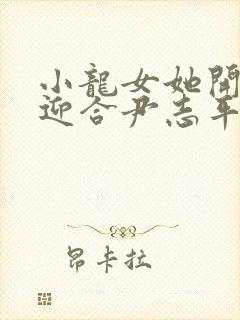 小龍女她開
迎合尹志平
昂卡拉